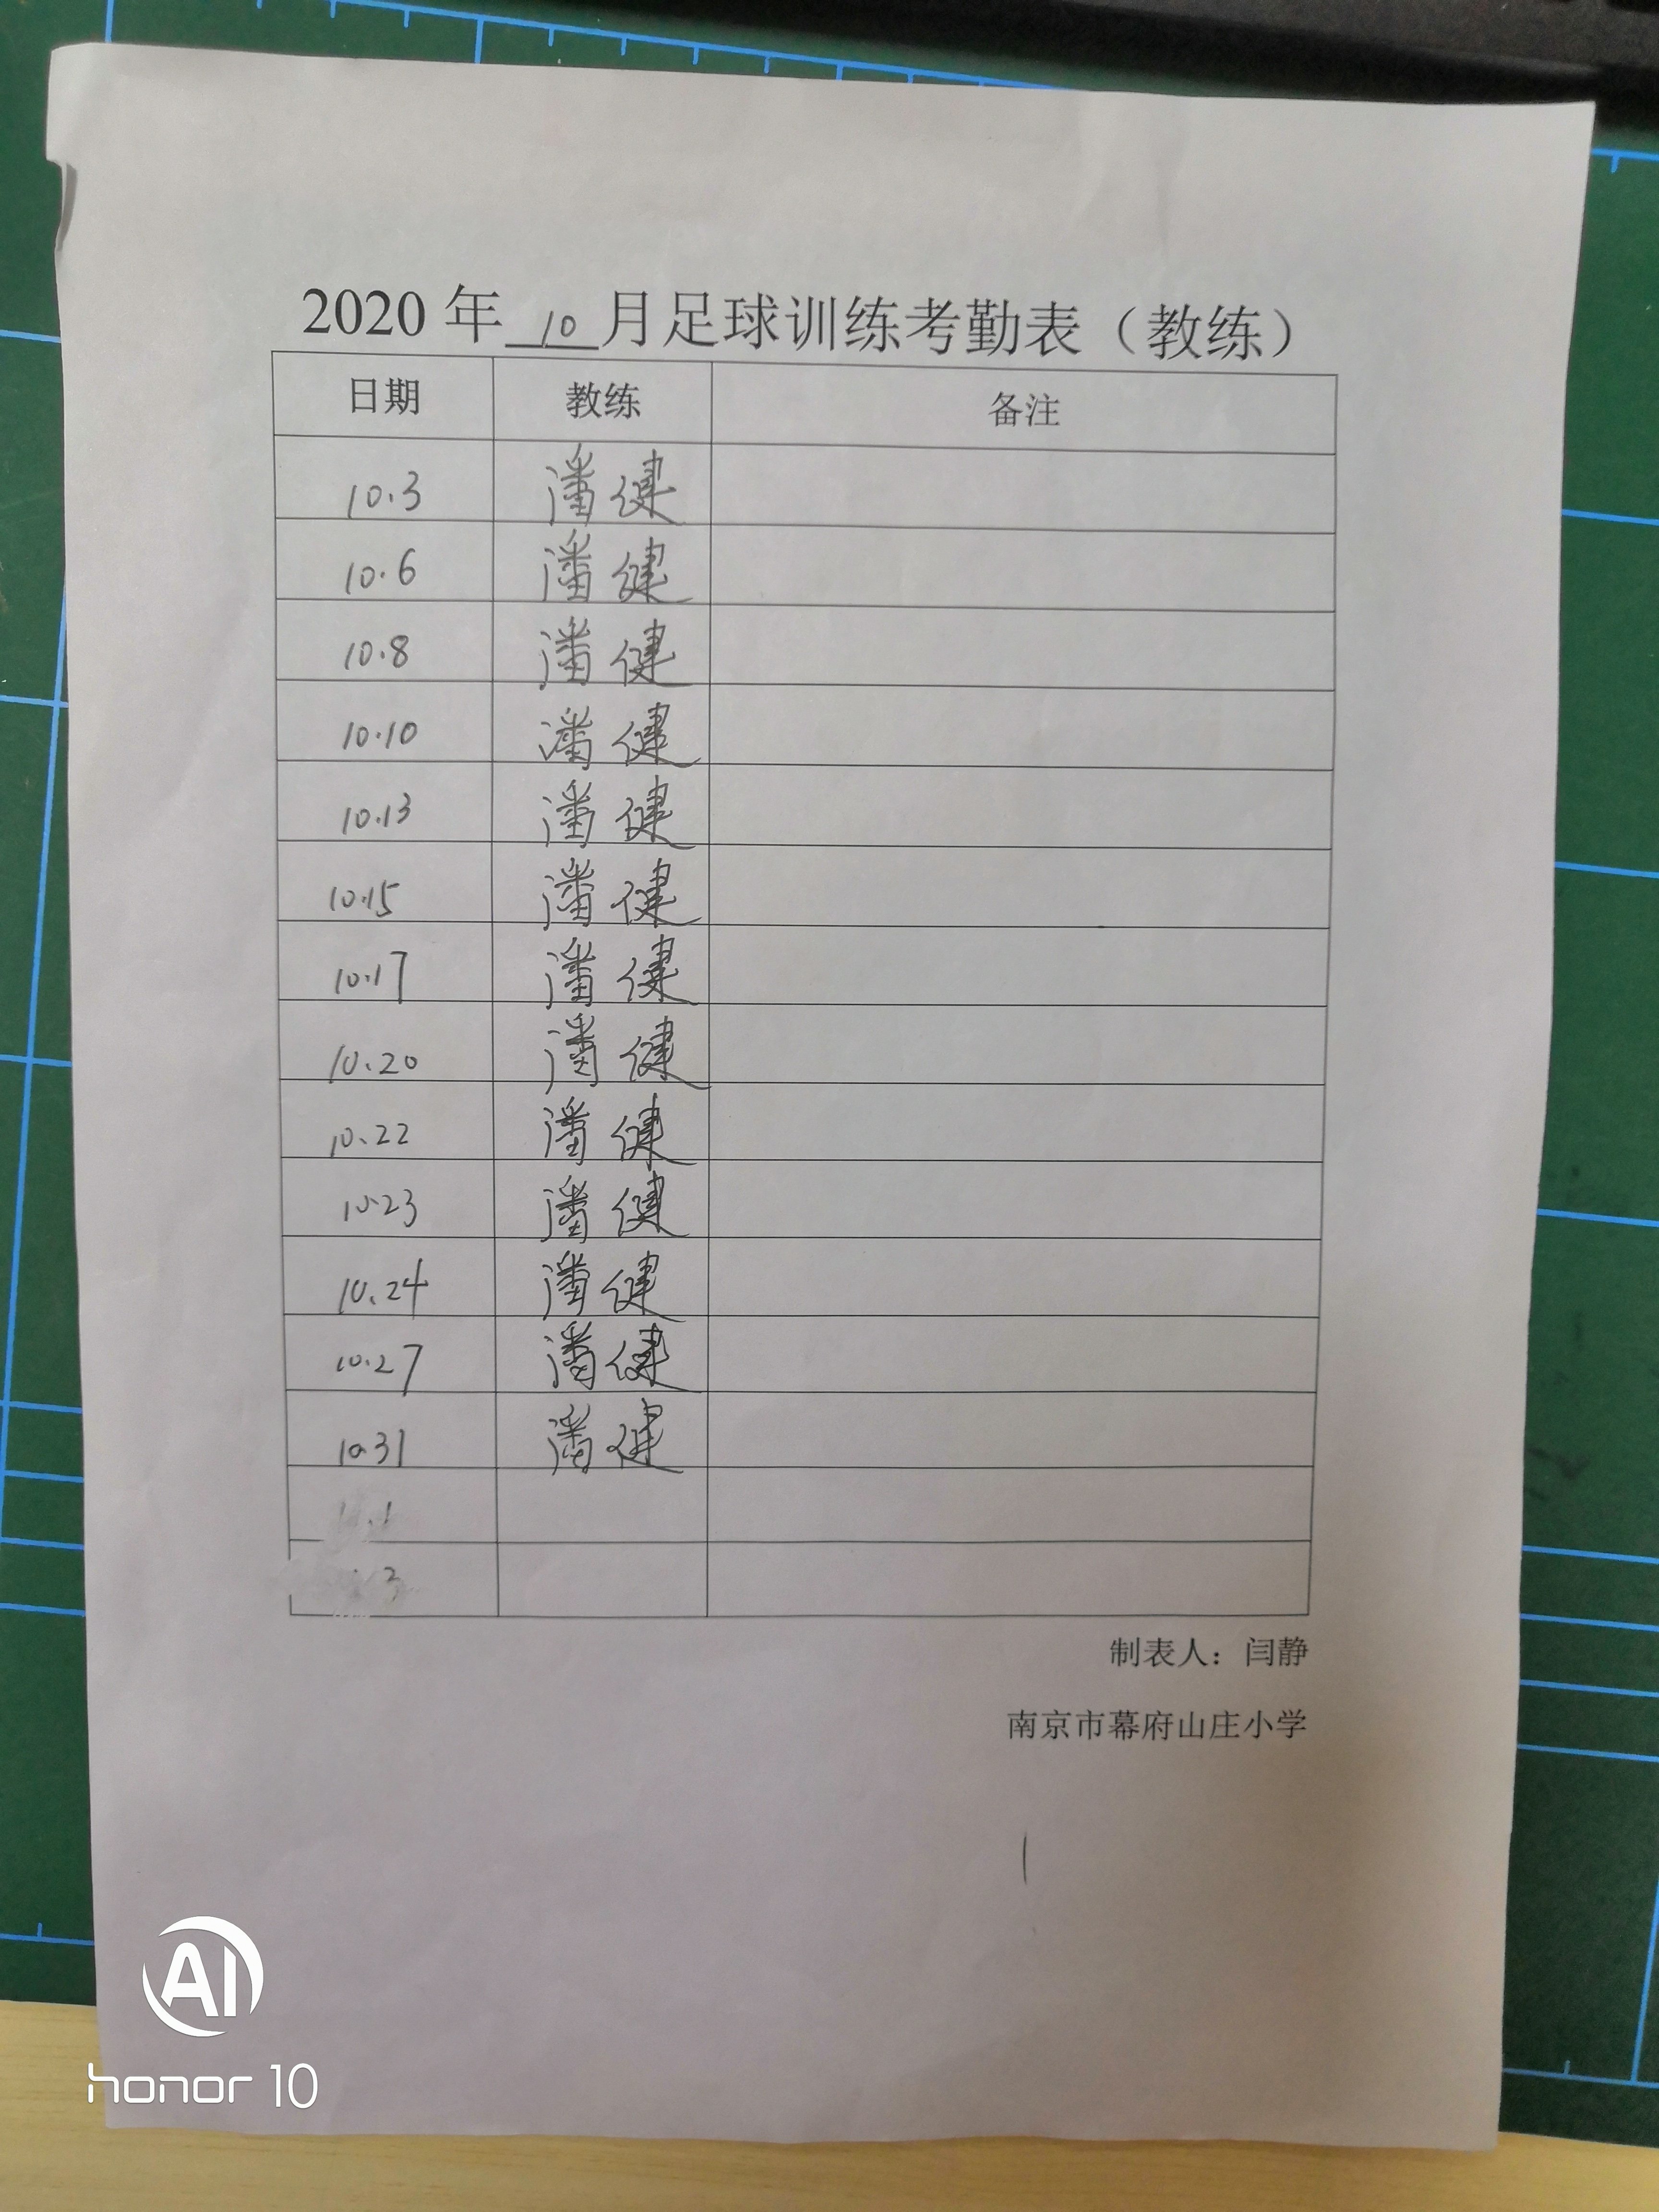 2020年 10 月足球训练考勤表（教练）
日期 教练 备注
10.3 潘健
10.6 潘健
10.8 潘健
10.10 潘健
10.13 潘健
10.15 潘健
10.17 潘健
10.20 潘健
10.22 潘健
10.23 潘健
10.24 潘健
10.27 潘健
10.31 潘健
制表人：闫静
南京市幕府山庄小学
AI
honor 10